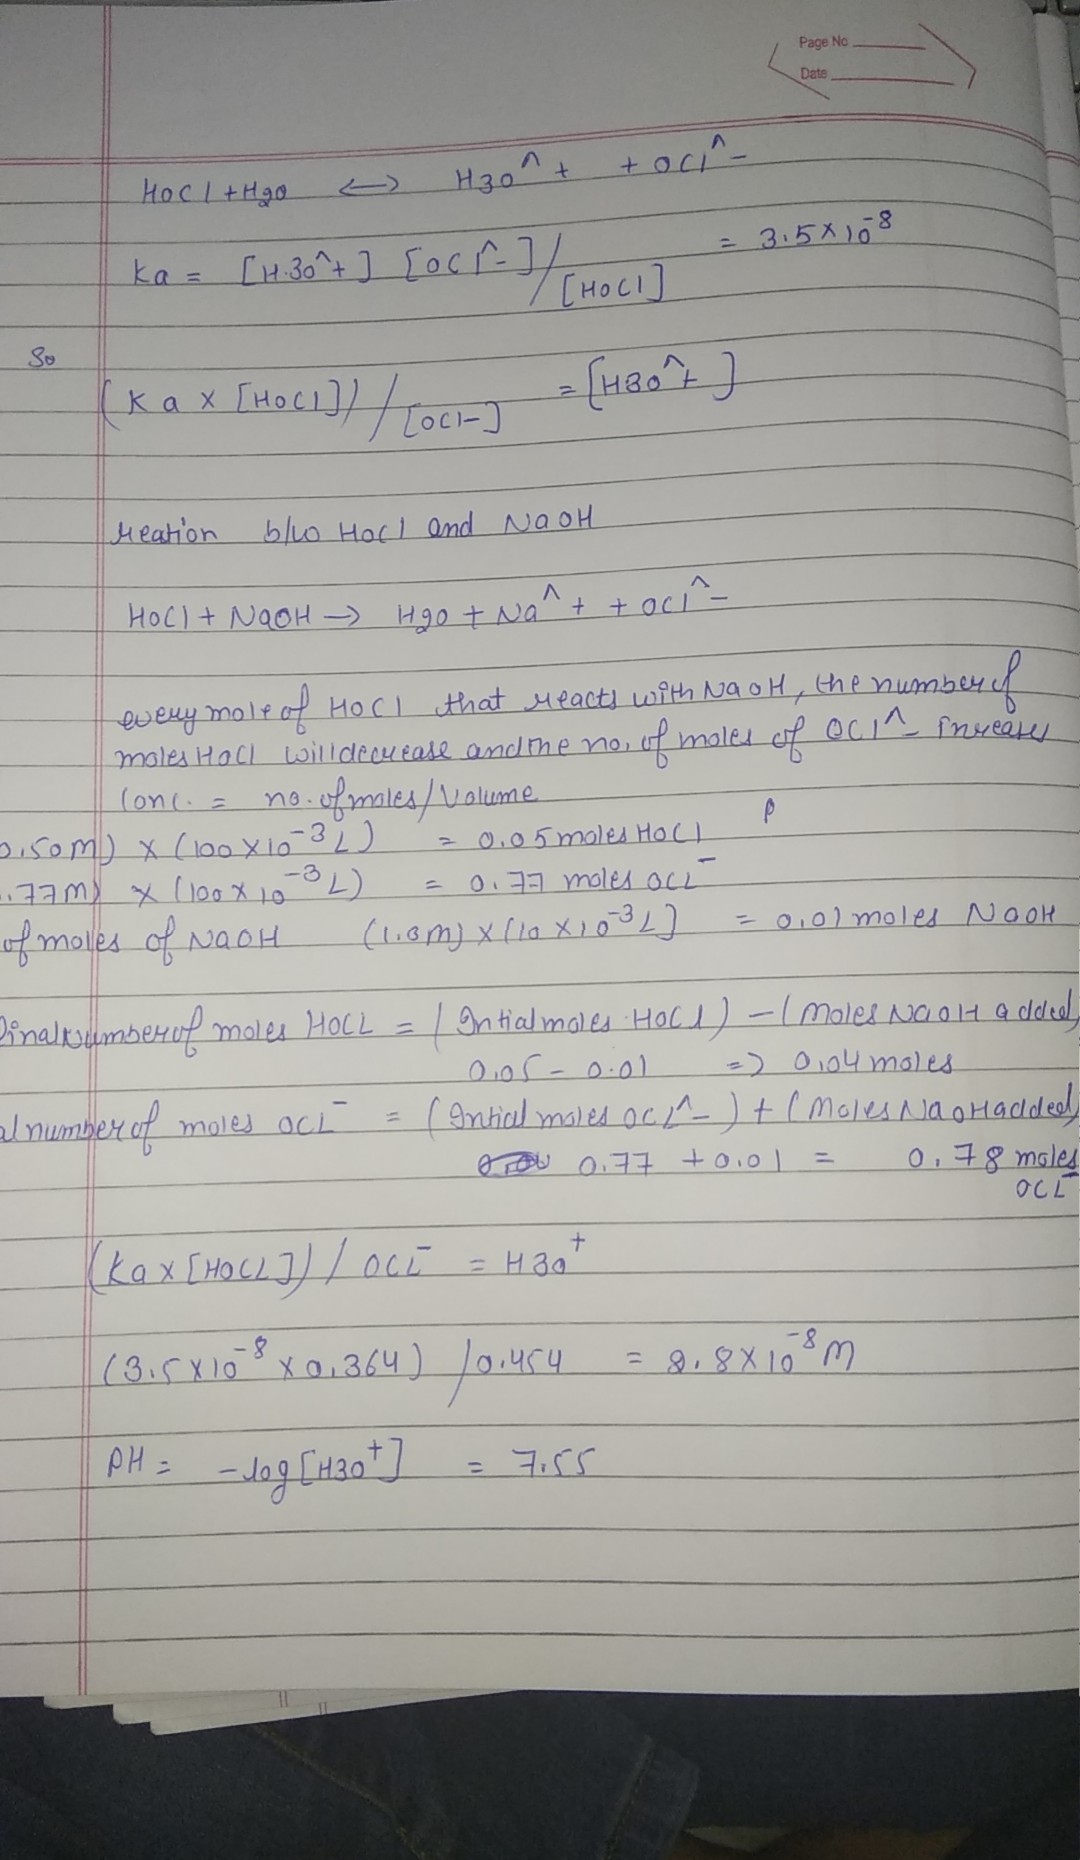 Page No
Date
HOCl + H2O <-> H3O^+ + OCl^-
Ka = [H3O^+] [OCl^-] / [HOCl] = 3.5 × 10^-8
So
(Ka × [HOCl]) / [OCl-] = [H3O^+]
reation b/w HOCl and NaOH
HOCl + NaOH → H2O + Na^+ + OCl^-
every mole of HOCl that reacts with NaOH, the number of
moles HOCl will decrease and the no. of moles of OCl^- increases
Conc. = no. of moles/Volume
0.50M) × (100×10^-3 L) = 0.05 moles HOCl
.77M) × (100×10^-3 L) = 0.77 moles OCL^-
of moles of NaOH (1.0M) × (10×10^-3 L] = 0.01 moles NaOH
Final number of moles HOCL = (Intial moles HOCl) - (Moles NaOH added)
0.05 - 0.01 => 0.04 moles
al number of moles OCL^- = (Intial moles OCL^-) + (Moles NaOH added)
0.77 + 0.01 = 0.78 moles
OCL^-
(Ka × [HOCL]) / OCL^- = H3O^+
(3.5×10^-8 × 0.364) / 0.454 = 2.8×10^-8 M
PH = -log [H3O^+] = 7.55